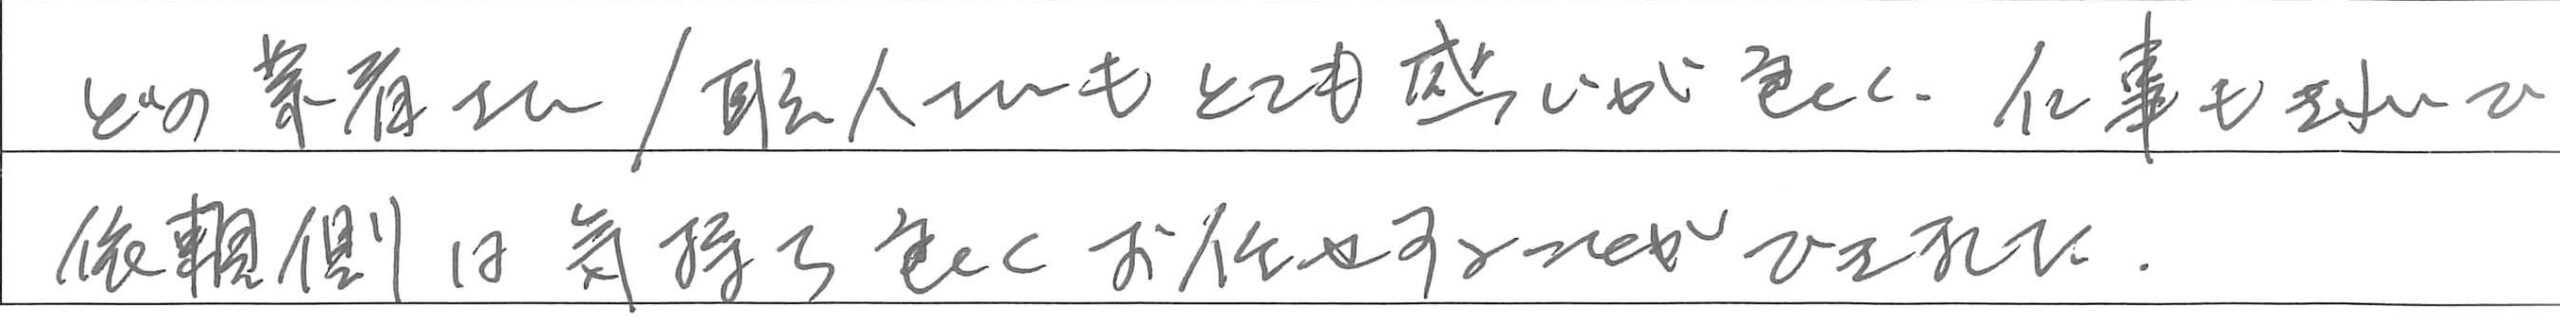 どの業者さん/職人さんもとても感じが良く、仕事もきれいで
依頼側は気持ち良くお任せすることができました。